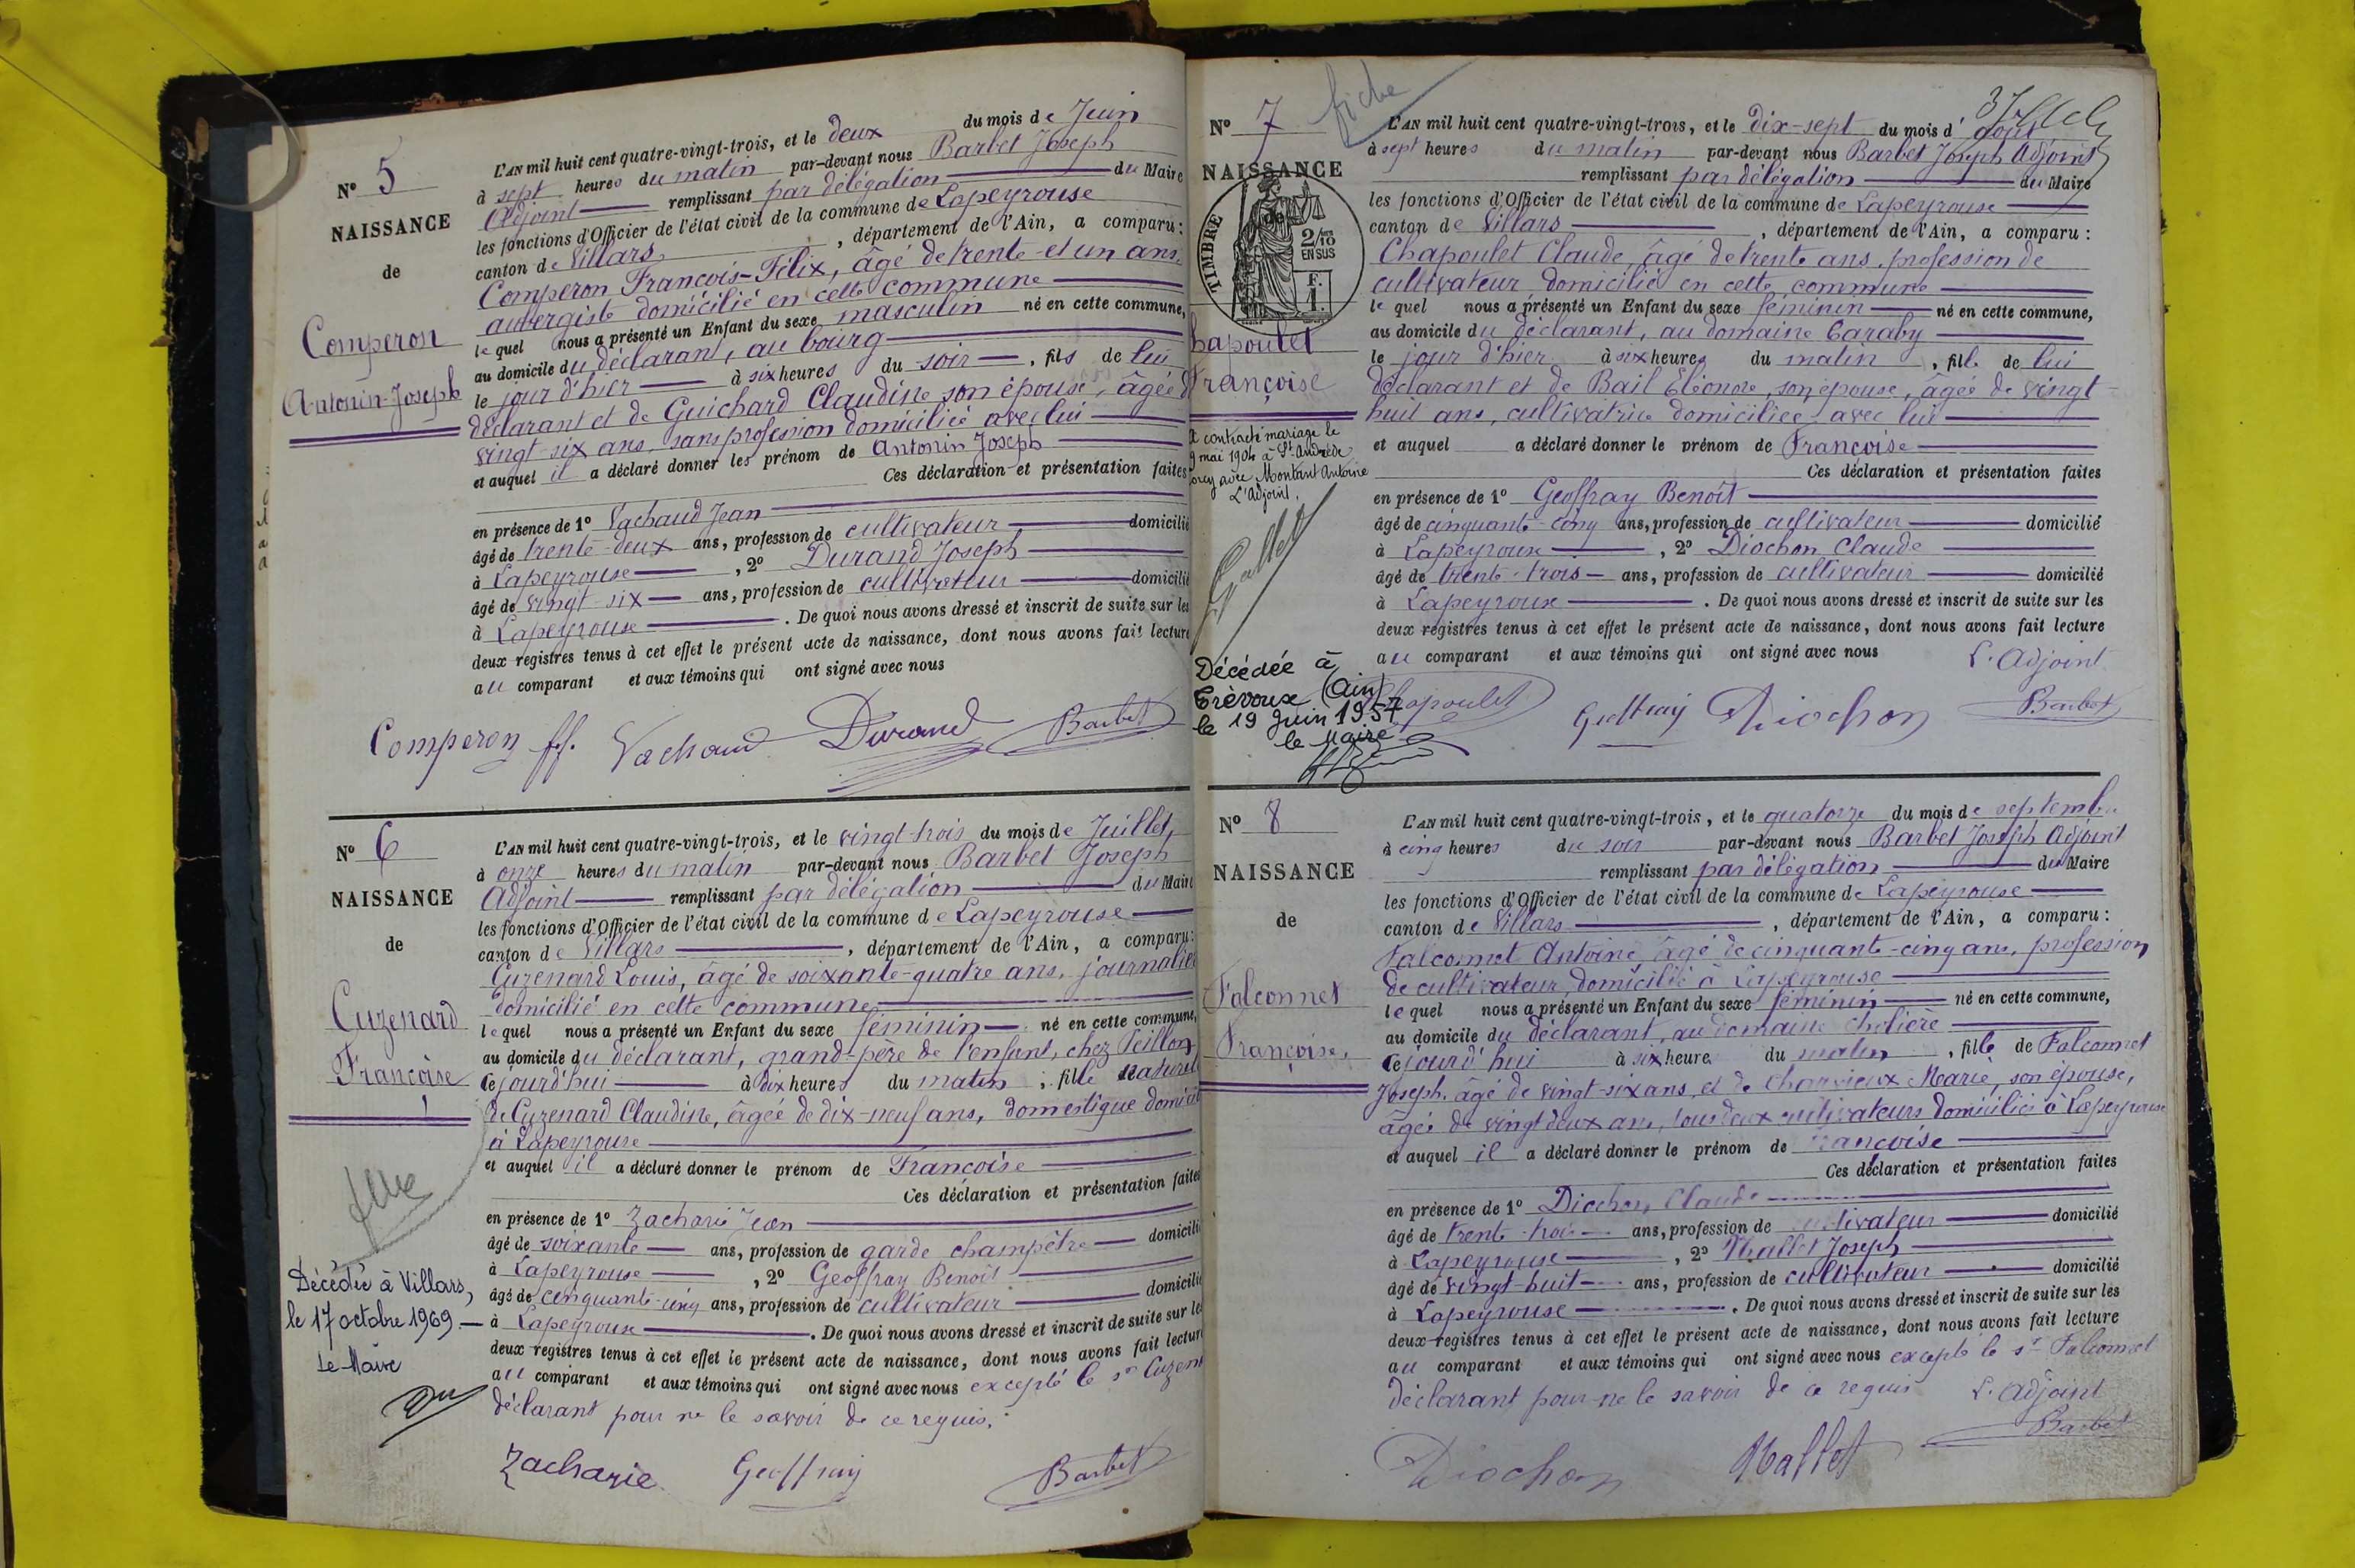 N° 5
NAISSANCE
de
Comperon
Antonin-Joseph
L'AN mil huit cent quatre-vingt-trois, et le deux du mois de Juin
à sept heures du matin par-devant nous Barbet Joseph
Adjoint remplissant par délégation du Maire
les fonctions d'Officier de l'état civil de la commune de Lapeyrouse
canton de Villars, département de l'Ain, a comparu :
Comperon François-Félix, âgé de trente et un ans,
aubergiste domicilié en cette commune
lequel nous a présenté un Enfant du sexe masculin né en cette commune,
au domicile du déclarant, au bourg
le jour d'hier à six heures du soir, fils de lui
déclarant et de Guichard Claudine son épouse, âgée de
vingt-six ans, sans profession domiciliée avec lui
et auquel il a déclaré donner les prénom de Antonin Joseph
Ces déclaration et présentation faites
en présence de 1° Vachaud Jean
âgé de trente-deux ans, profession de cultivateur domicilié
à Lapeyrouse, 2° Durand Joseph
âgé de vingt-six ans, profession de cultivateur domicilié
à Lapeyrouse. De quoi nous avons dressé et inscrit de suite sur les
deux registres tenus à cet effet le présent acte de naissance, dont nous avons fait lecture
au comparant et aux témoins qui ont signé avec nous
Comperon ff. Vachaud Durand Barbet
N° 6
NAISSANCE
de
Cuzenard
Françoise
Décédée à Villars,
le 17 octobre 1969
Le Maire
L'AN mil huit cent quatre-vingt-trois, et le vingt-trois du mois de Juillet,
à onze heures du matin par-devant nous Barbet Joseph
Adjoint remplissant par délégation du Maire
les fonctions d'Officier de l'état civil de la commune de Lapeyrouse
canton de Villars, département de l'Ain, a comparu :
Cuzenard Louis, âgé de soixante-quatre ans, journalier
domicilié en cette commune
lequel nous a présenté un Enfant du sexe féminin né en cette commune,
au domicile du déclarant, grand-père de l'enfant, chez Peillon
Cejourd'hui à dix heures du matin, fille naturel
de Cuzenard Claudine, âgée de dix-neuf ans, domestique domicil
à Lapeyrouse
et auquel il a déclaré donner le prénom de Françoise
Ces déclaration et présentation faites
en présence de 1° Zacharie Jean
âgé de soixante ans, profession de garde champêtre domicilié
à Lapeyrouse, 2° Geoffray Benoit
âgé de cinquante-cinq ans, profession de cultivateur domicilié
à Lapeyrouse. De quoi nous avons dressé et inscrit de suite sur les
deux registres tenus à cet effet le présent acte de naissance, dont nous avons fait lecture
au comparant et aux témoins qui ont signé avec nous excepté le sr Cuzen
déclarant pour ne le savoir de ce requis.
Zacharie Geoffray Barbet
fiche
N° 7
NAISSANCE
de
TIMBRE
2/10 EN SUS
F. 1.
Chapoulet
Françoise
A contracté mariage le
9 mai 1904 à St André de
Corcy avec Montant Antoine
L'Adjoint,
Décédée à
Trévoux (Ain)
le 19 Juin 1957
le Maire
L'AN mil huit cent quatre-vingt-trois, et le dix-sept du mois d'août
à sept heures du matin par-devant nous Barbet Joseph Adjoint
remplissant par délégation du Maire
les fonctions d'Officier de l'état civil de la commune de Lapeyrouse
canton de Villars, département de l'Ain, a comparu :
Chapoulet Claude, âgé de trente ans, profession de
cultivateur domicilié en cette commune
lequel nous a présenté un Enfant du sexe féminin né en cette commune,
au domicile du déclarant, au domaine Caraby
le jour d'hier à six heures du matin, fille de lui
déclarant et de Bail Eléonore, son épouse, âgée de vingt-
huit ans, cultivatrice domiciliée avec lui
et auquel a déclaré donner le prénom de Françoise
Ces déclaration et présentation faites
en présence de 1° Geoffray Benoît
âgé de cinquante-cinq ans, profession de cultivateur domicilié
à Lapeyrouse, 2° Diochon Claude
âgé de trente-trois ans, profession de cultivateur domicilié
à Lapeyrouse. De quoi nous avons dressé et inscrit de suite sur les
deux registres tenus à cet effet le présent acte de naissance, dont nous avons fait lecture
au comparant et aux témoins qui ont signé avec nous L'Adjoint
Chapoulet Geoffray Diochon Barbet
N° 8
NAISSANCE
de
Falconnet
Françoise,
L'AN mil huit cent quatre-vingt-trois, et le quatorze du mois de septembre
à cinq heures du soir par-devant nous Barbet Joseph Adjoint
remplissant par délégation du Maire
les fonctions d'Officier de l'état civil de la commune de Lapeyrouse
canton de Villars, département de l'Ain, a comparu :
Falconnet Antoine, âgé de cinquante-cinq ans, profession
de cultivateur, domicilié à Lapeyrouse
lequel nous a présenté un Enfant du sexe féminin né en cette commune,
au domicile du déclarant, au domaine Cholière
Cejourd'hui à six heure du matin, fille de Falconnet
Joseph, âgé de vingt-six ans, et de Charvieux Marie, son épouse,
âgée de vingt deux ans, tous deux cultivateurs domiciliés à Lapeyrouse
et auquel il a déclaré donner le prénom de Françoise
Ces déclaration et présentation faites
en présence de 1° Diochon Claude
âgé de trente-trois ans, profession de cultivateur domicilié
à Lapeyrouse, 2° Mallet Joseph
âgé de vingt-huit ans, profession de cultivateur domicilié
à Lapeyrouse. De quoi nous avons dressé et inscrit de suite sur les
deux registres tenus à cet effet le présent acte de naissance, dont nous avons fait lecture
au comparant et aux témoins qui ont signé avec nous excepté le sr Falconnet
déclarant pour ne le savoir de ce requis L'Adjoint
Diochon Mallet Barbet